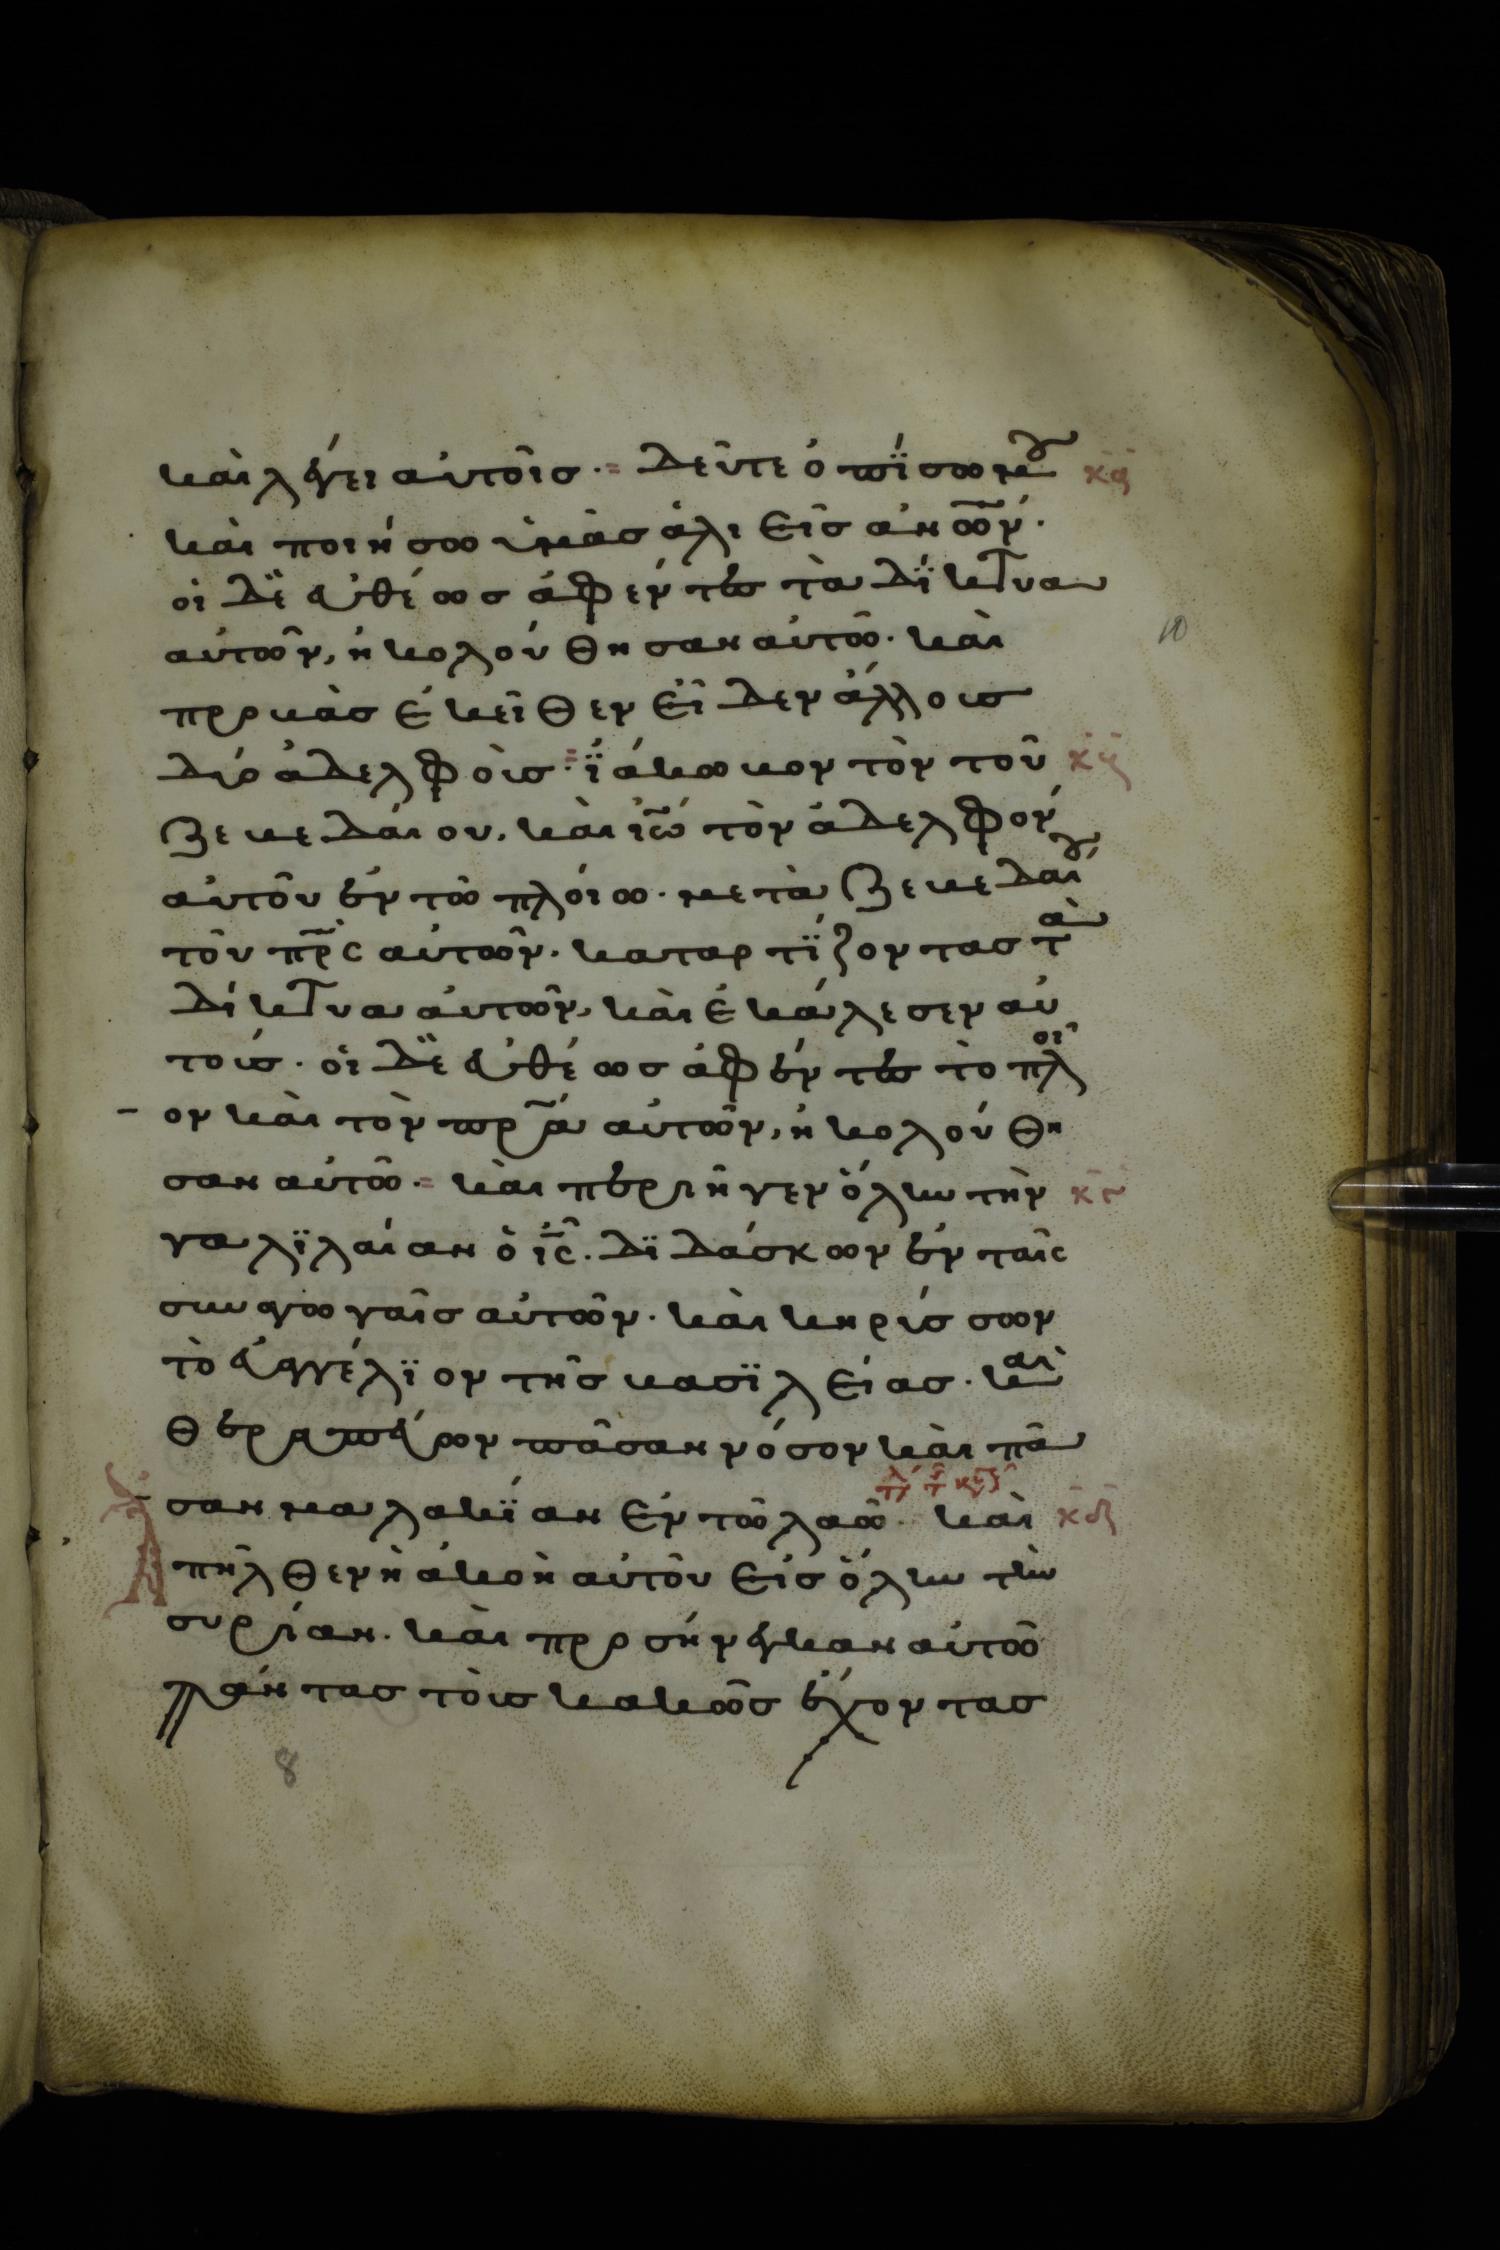 καὶ λέγει αὐτοῖσ· δεῦτε ὀπΐσω μου κα
καὶ ποιήσω ὑμὰσ ἁλιεῖσ ἀνῶν·
οἱ δὲ εὐθέωσ ἀφέντες τὰ δΐκτυα
αὐτῶν, ἠκολούθησαν αὐτῶ· καὶ
προβὰσ ἐκεῖθεν εἶδεν ἄλλουσ
δύο ἀδελφοὺσ· ϊάκωβον τὸν τοῦ κβ
ζεβεδαίου, καὶ ιω τὸν ἀδελφόν
αὐτοῦ ἐν τῶ πλοίω· μετὰ ζεβεδαίου
τοῦ πρς αὐτῶν· καταρτΐζοντασ τὰ
δίκτυα αὐτῶν, καὶ ἐκάλεσεν αὐ
τούσ· οἱ δὲ εὐθέωσ ἀφέντες τὸ πλοῖ
ον καὶ τὸν πρα αὐτῶν, ἠκολούθη
σαν αὐτῶ· καὶ περιῆγεν ὅλην τὴν κγ
γαλϊλαίαν ὁ ις· δϊδάσκων ἐν ταῖς
συναγωγαῖσ αὐτῶν· καὶ κηρύσσων
τὸ εὐαγγέλϊον τῆσ βασϊλείασ· καὶ
θεραπεύων πᾶσαν νόσον καὶ πᾶ
σαν μαλακΐαν ἐν τῶ λαῶ· καὶ κδ
Ἀπῆλθεν ἡ ἀκοὴ αὐτοῦ εἰσ ὅλην τὴν
συρίαν· καὶ προσήνεγκαν αὐτῶ
πάντασ τοὺσ κακῶσ ἔχοντασ
10
8